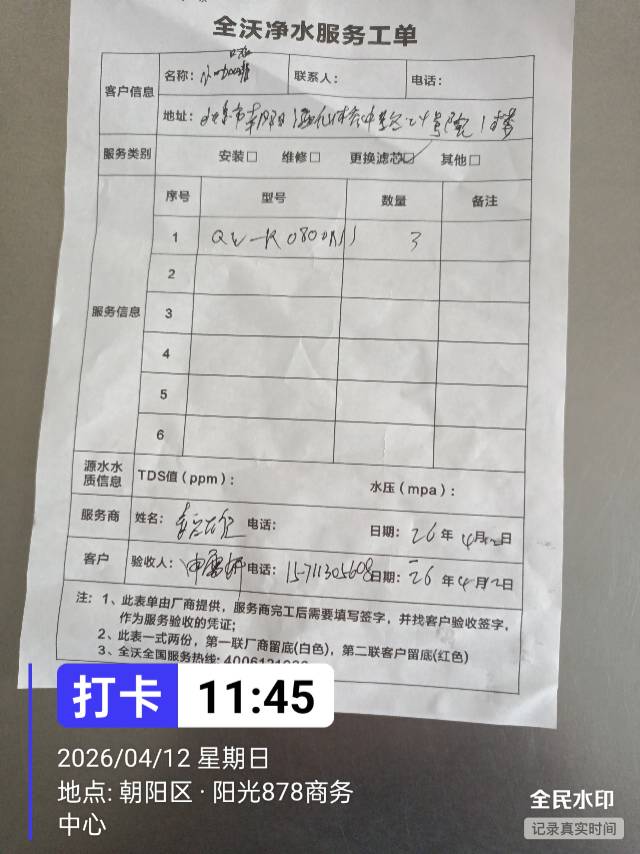 全沃净水服务工单
客户信息
名称：
联系人：
电话：
地址：北京市朝阳区 24号院1楼
服务类别
安装□ 维修□ 更换滤芯☑ 其他□
服务信息
序号 型号 数量 备注
1 3
2
3
4
5
6
源水水质信息
TDS值（ppm）： 水压（mpa）：
服务商
姓名： 电话： 日期：26年4月12日
客户
验收人： 电话：15711305608 日期：26年4月12日
注：1、此表单由厂商提供，服务商完工后需要填写签字，并找客户验收签字，
作为服务验收的凭证；
2、此表一式两份，第一联厂商留底(白色)，第二联客户留底(红色)
3、全沃全国服务热线：
打卡 11:45
2026/04/12 星期日
地点: 朝阳区 · 阳光878商务
中心
全民水印
记录真实时间